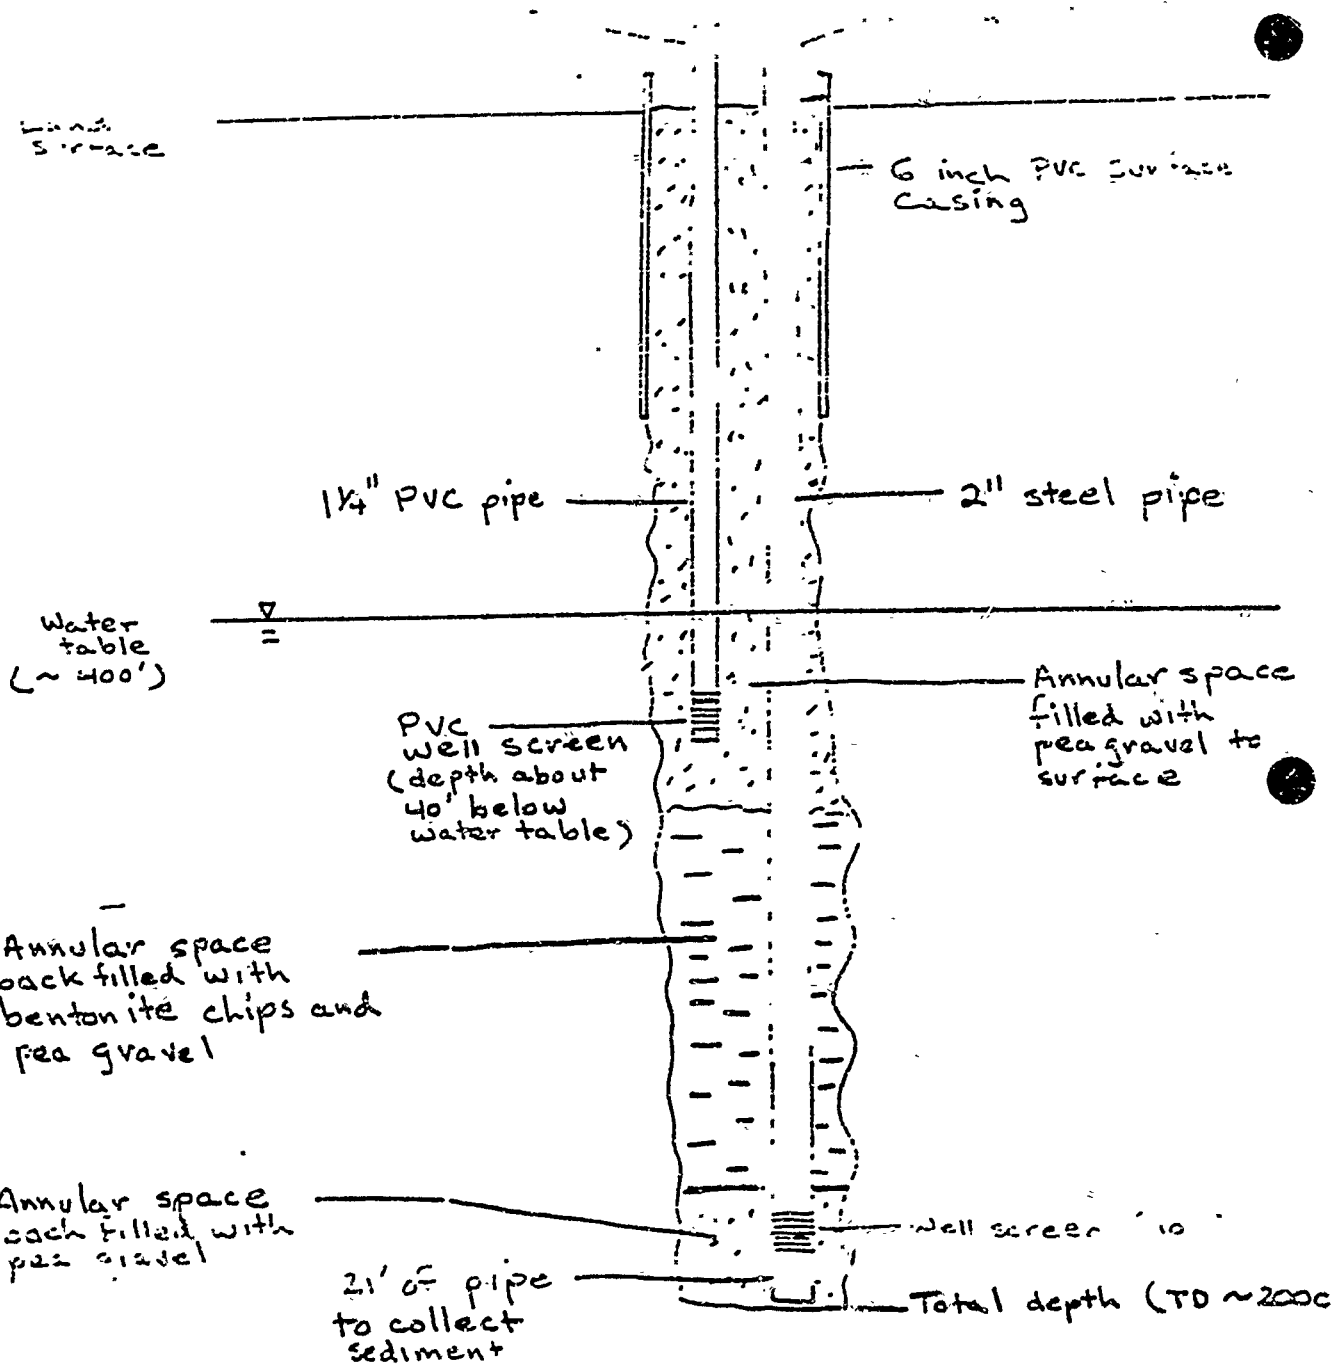 Land
Surface
6 inch PVC Surface
Casing
1¼" PVC pipe
2" steel pipe
Water
table
(~ 400')
Annular space
filled with
pea gravel to
surface
PVC
well screen
(depth about
40' below
water table)
Annular space
back filled with
bentonite chips and
pea gravel
Annular space
back filled with
pea gravel
Well screen
21' of pipe
to collect
sediment
Total depth (TD ~200